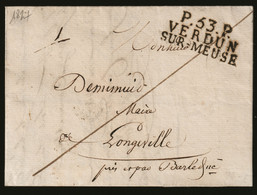 1827
P.53.P.
VERDUN
SUR-MEUSE
Monsieur
Demimuid
Maire
à
Longeville
près et par Barleduc